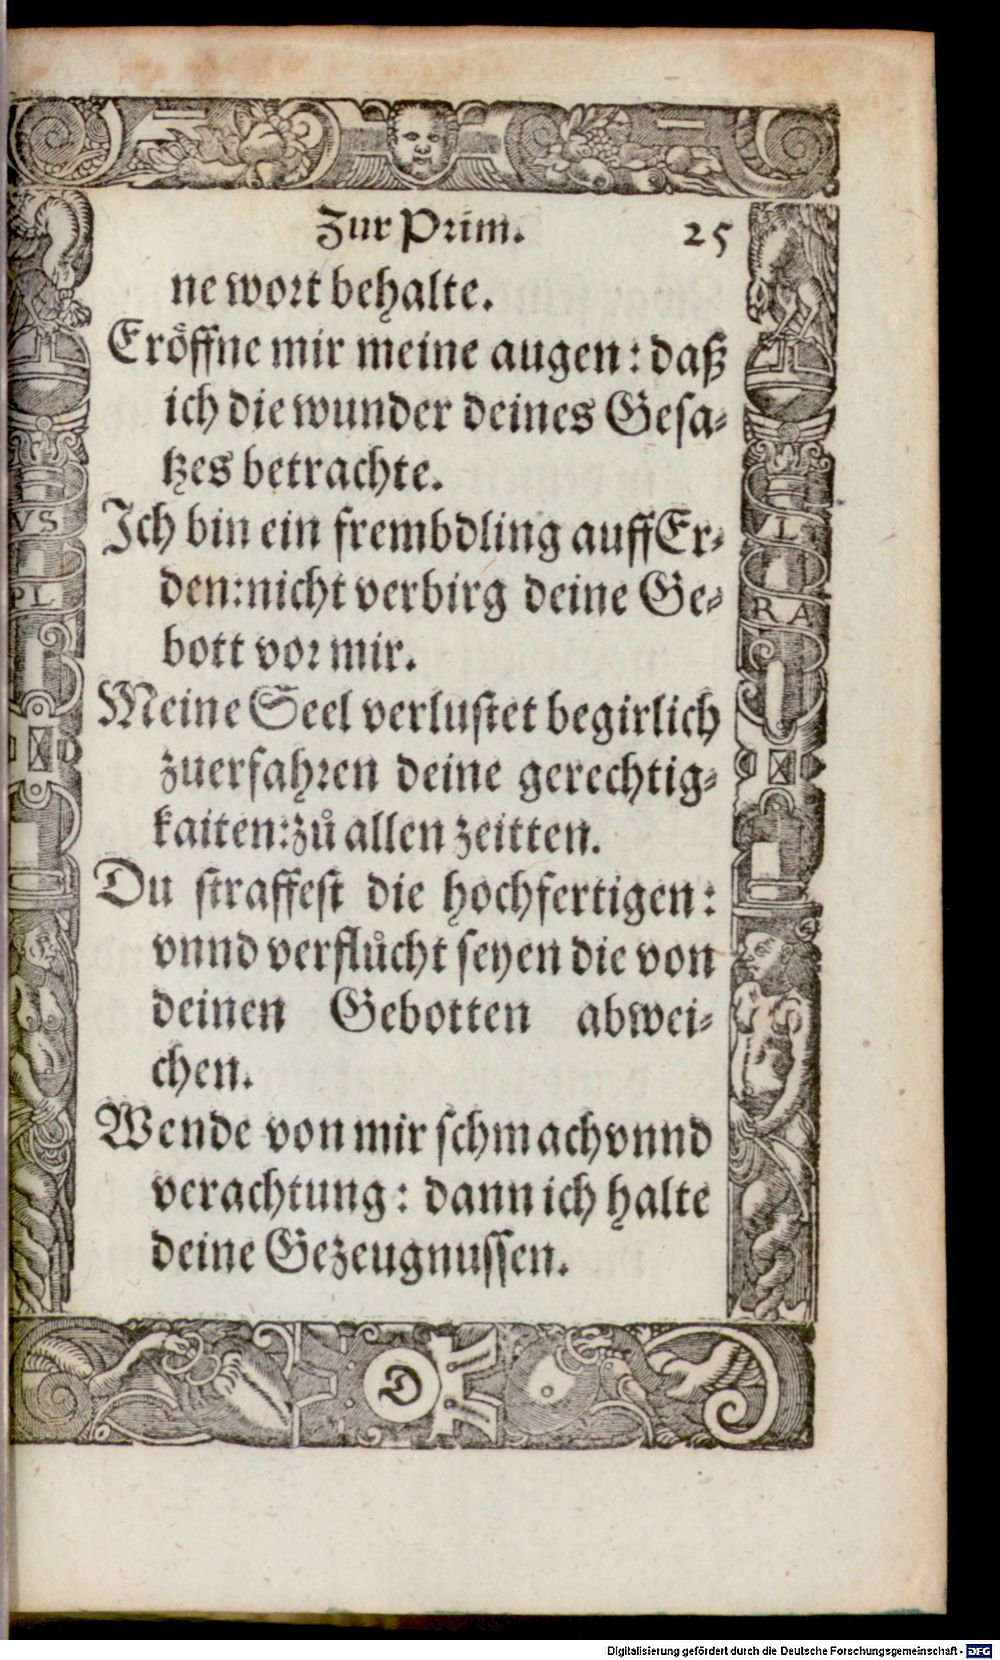 Zur Prim. 25
ne wort behalte.
Eröffne mir meine augen: daß
ich die wunder deines Gesa⸗
tzes betrachte.
Ich bin ein frembdling auff Er⸗
den: nicht verbirg deine Ge⸗
bott vor mir.
Meine Seel verlustet begirlich
zuerfahren deine gerechtig⸗
kaiten: zů allen zeitten.
Du straffest die hochfertigen:
vnnd verflůcht seyen die von
deinen Gebotten abwei⸗
chen.
Wende von mir schmach vnnd
verachtung: dann ich halte
deine Gezeugnussen.
VS
PL
VL
RA
D
Digitalisierung gefördert durch die Deutsche Forschungsgemeinschaft - DFG